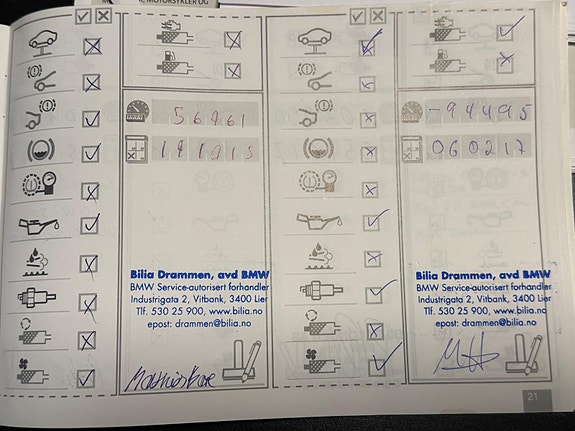 R, MOTORSYKLER OG
56961
141915
Bilia Drammen, avd BMW
BMW Service-autorisert forhandler
Industrigata 2, Vitbank, 3400 Lier
Tlf. 530 25 900, www.bilia.no
epost: drammen@bilia.no
-94495
060217
Bilia Drammen, avd BMW
BMW Service-autorisert forhandler
Industrigata 2, Vitbank, 3400 Lier
Tlf. 530 25 900, www.bilia.no
epost: drammen@bilia.no
21